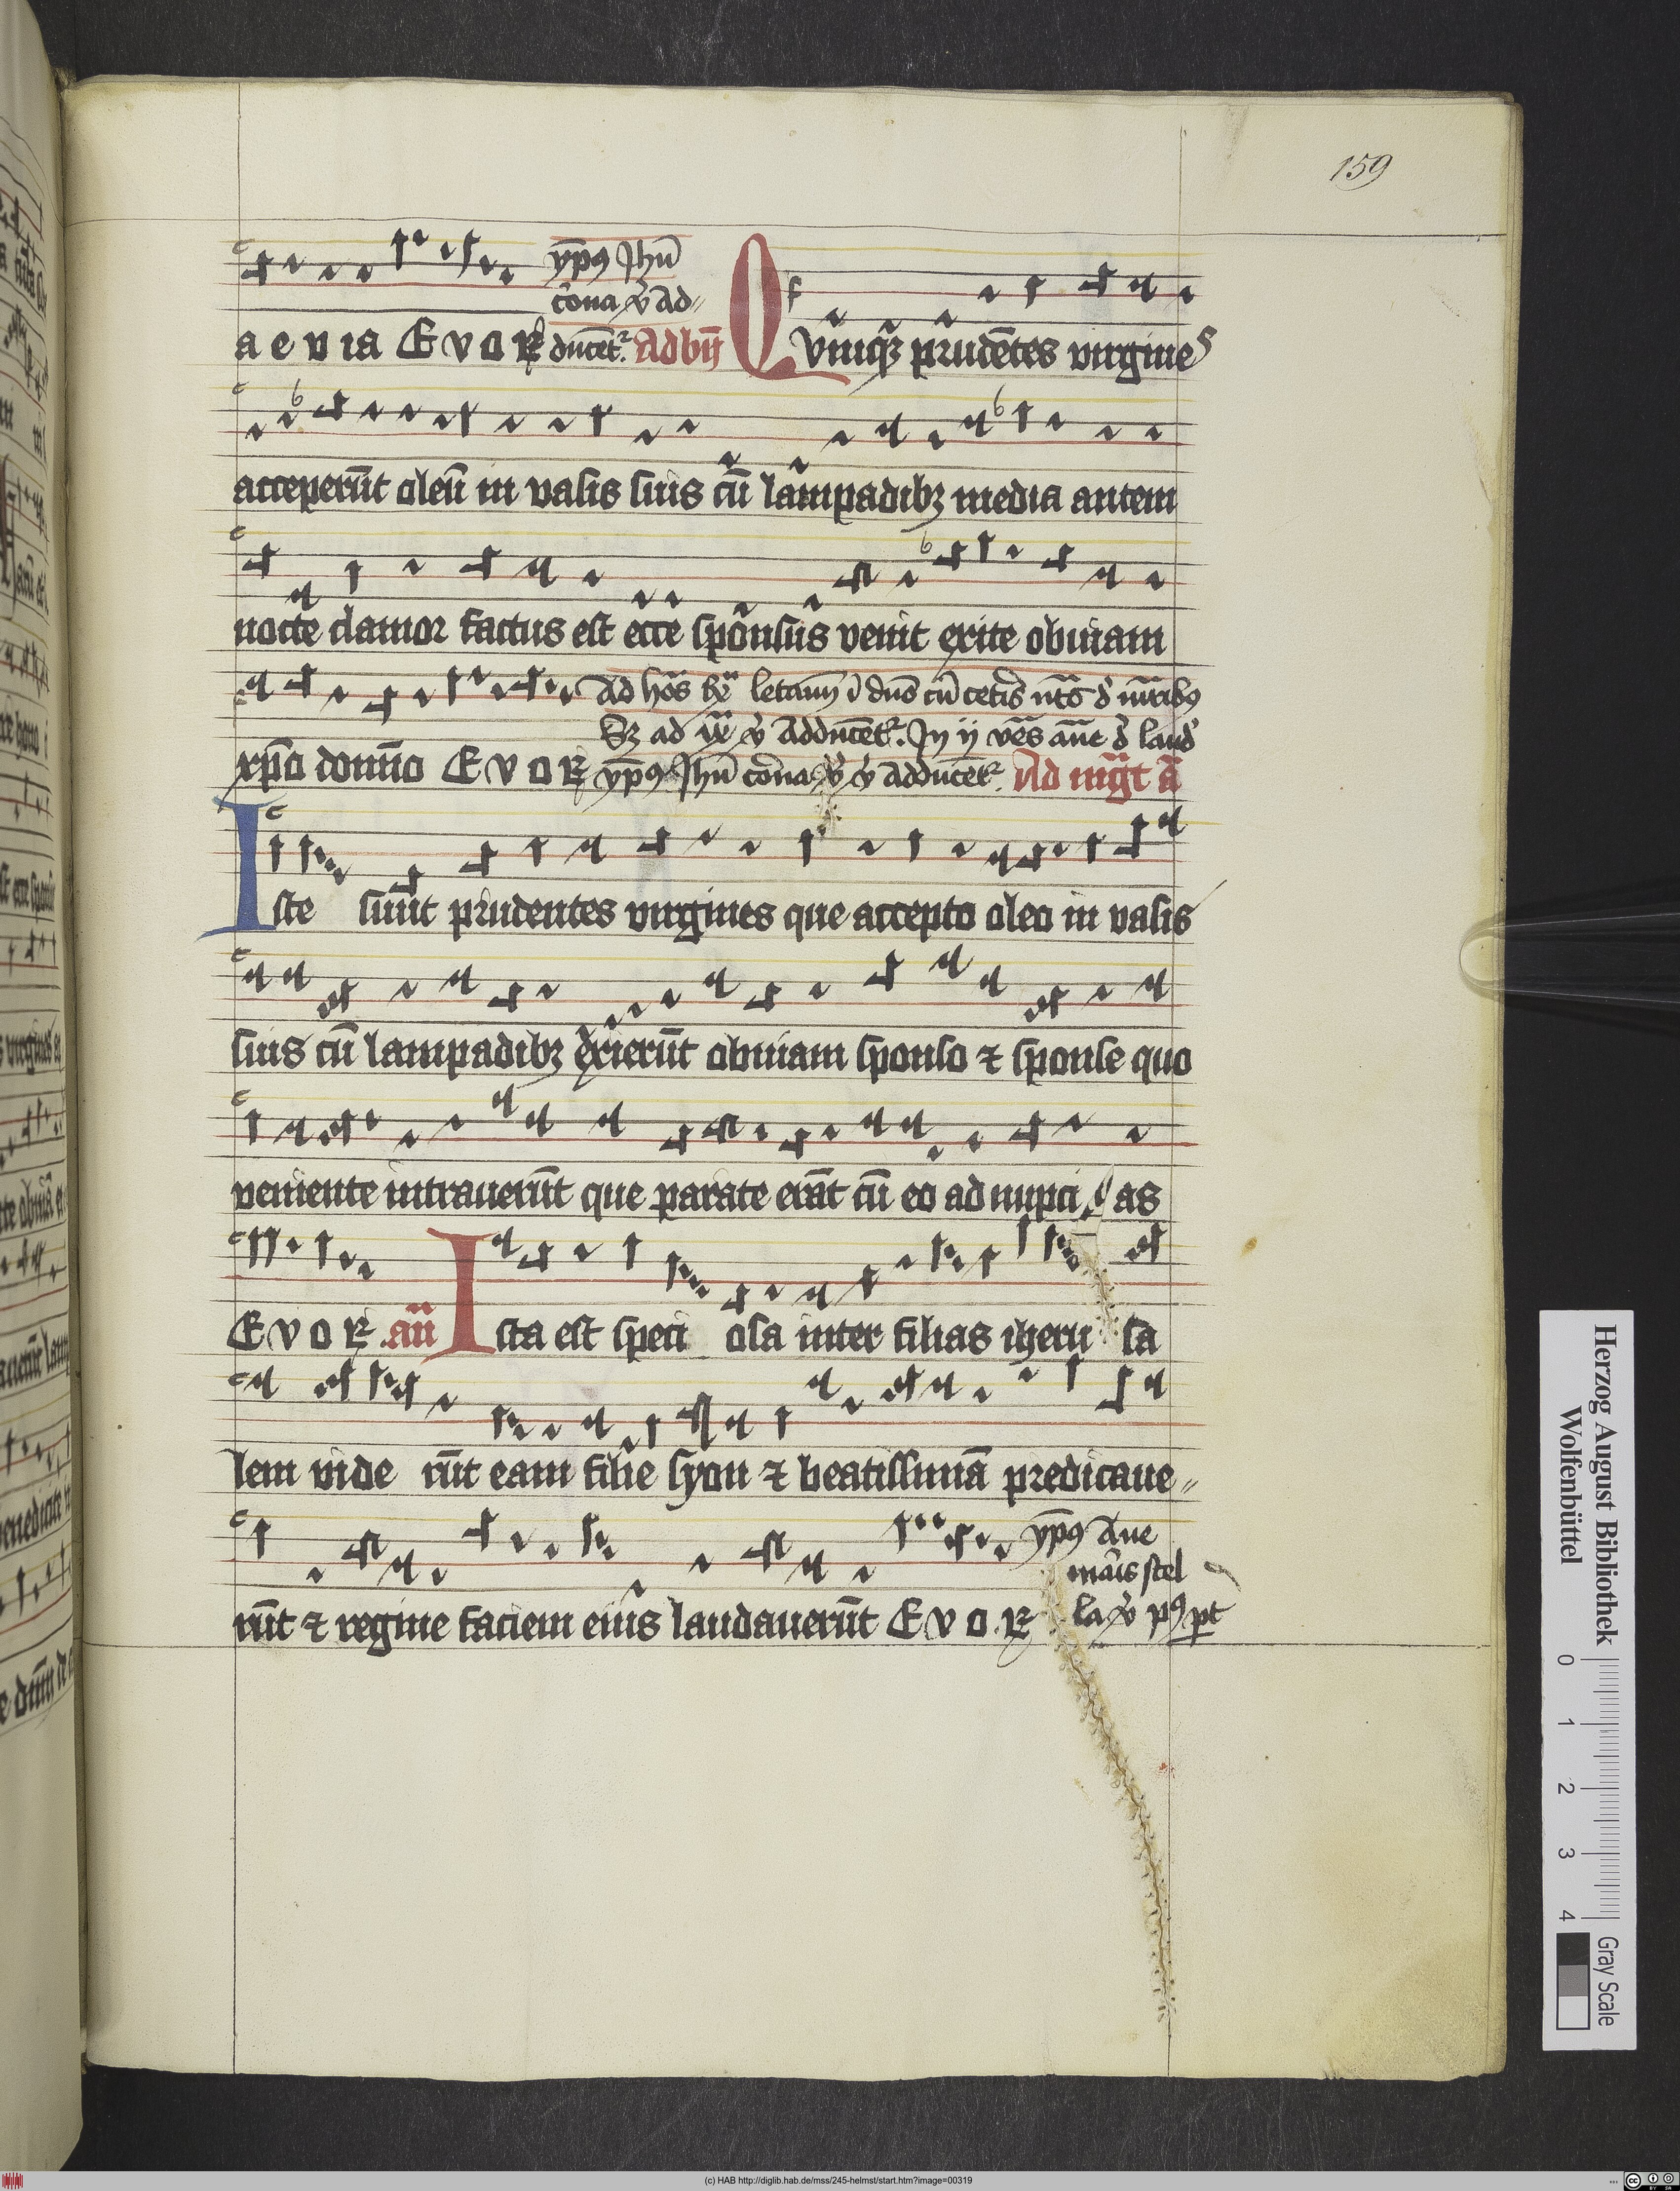 159
ypꝰ Jhũ
cͦona ꝟ Ad⸗
a e v ia E v o R ducet᷑. Ad bñ Qvinqꝫ prudẽtes virgines
acceperũt oleũ in vasis suis cũ lampadibꝫ media autem
nocte clamor factus est ecce sponsus venit exite obuiam
Ad ho᷑s letañ duo cũ ceti᷑s
Sꝫ ad ꝟ Adducẽt᷑. Jn ij ve᷑s añt laud᷑
xp̃o domĩo E v o R ypꝰ Jhũ coͬona ꝟ Adducẽt᷑. Ad mg̃t ã
Iste sunt prudentes virgines que accepto oleo in vasis
suis cũ lampadibꝫ exierũt obuiam sponso ⁊ sponse quo
veniente intrauerũt que parate erãt cũ eo ad nupci as
E v o R añ Ista est speci osa inter filias iheru sa
lem vide rũt eam filie syon ⁊ beatissimã predicaue⸗
ypꝰ Aue
ma᷑is stel
rũt ⁊ regine faciem eius laudauerũt E v o R la ꝟ pꝰ p̲t
Herzog August Bibliothek
Wolfenbüttel
0 1 2 3 4
Gray Scale
(c) HAB http://diglib.hab.de/mss/245-helmst/start.htm?image=00319